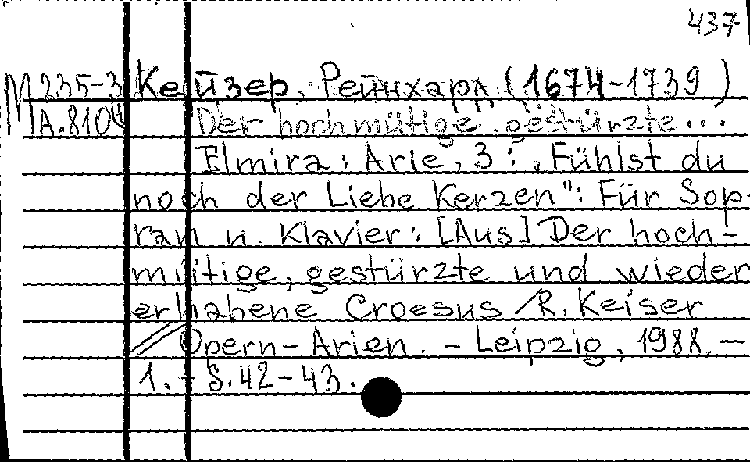 437
М 235-3 Кейзер, Рейнхард (1674-1739)
А.810 Der hochmütige, gestürzte...
Elmira: Arie, 3: „Fühlst du
noch der Liebe Kerzen": Für Sop-
ran u. Klavier: [Aus] Der hoch-
mütige, gestürzte und wieder
erhabene Croesus / R. Keiser
// Opern-Arien. - Leipzig, 1988. —
1. - S. 42-43.